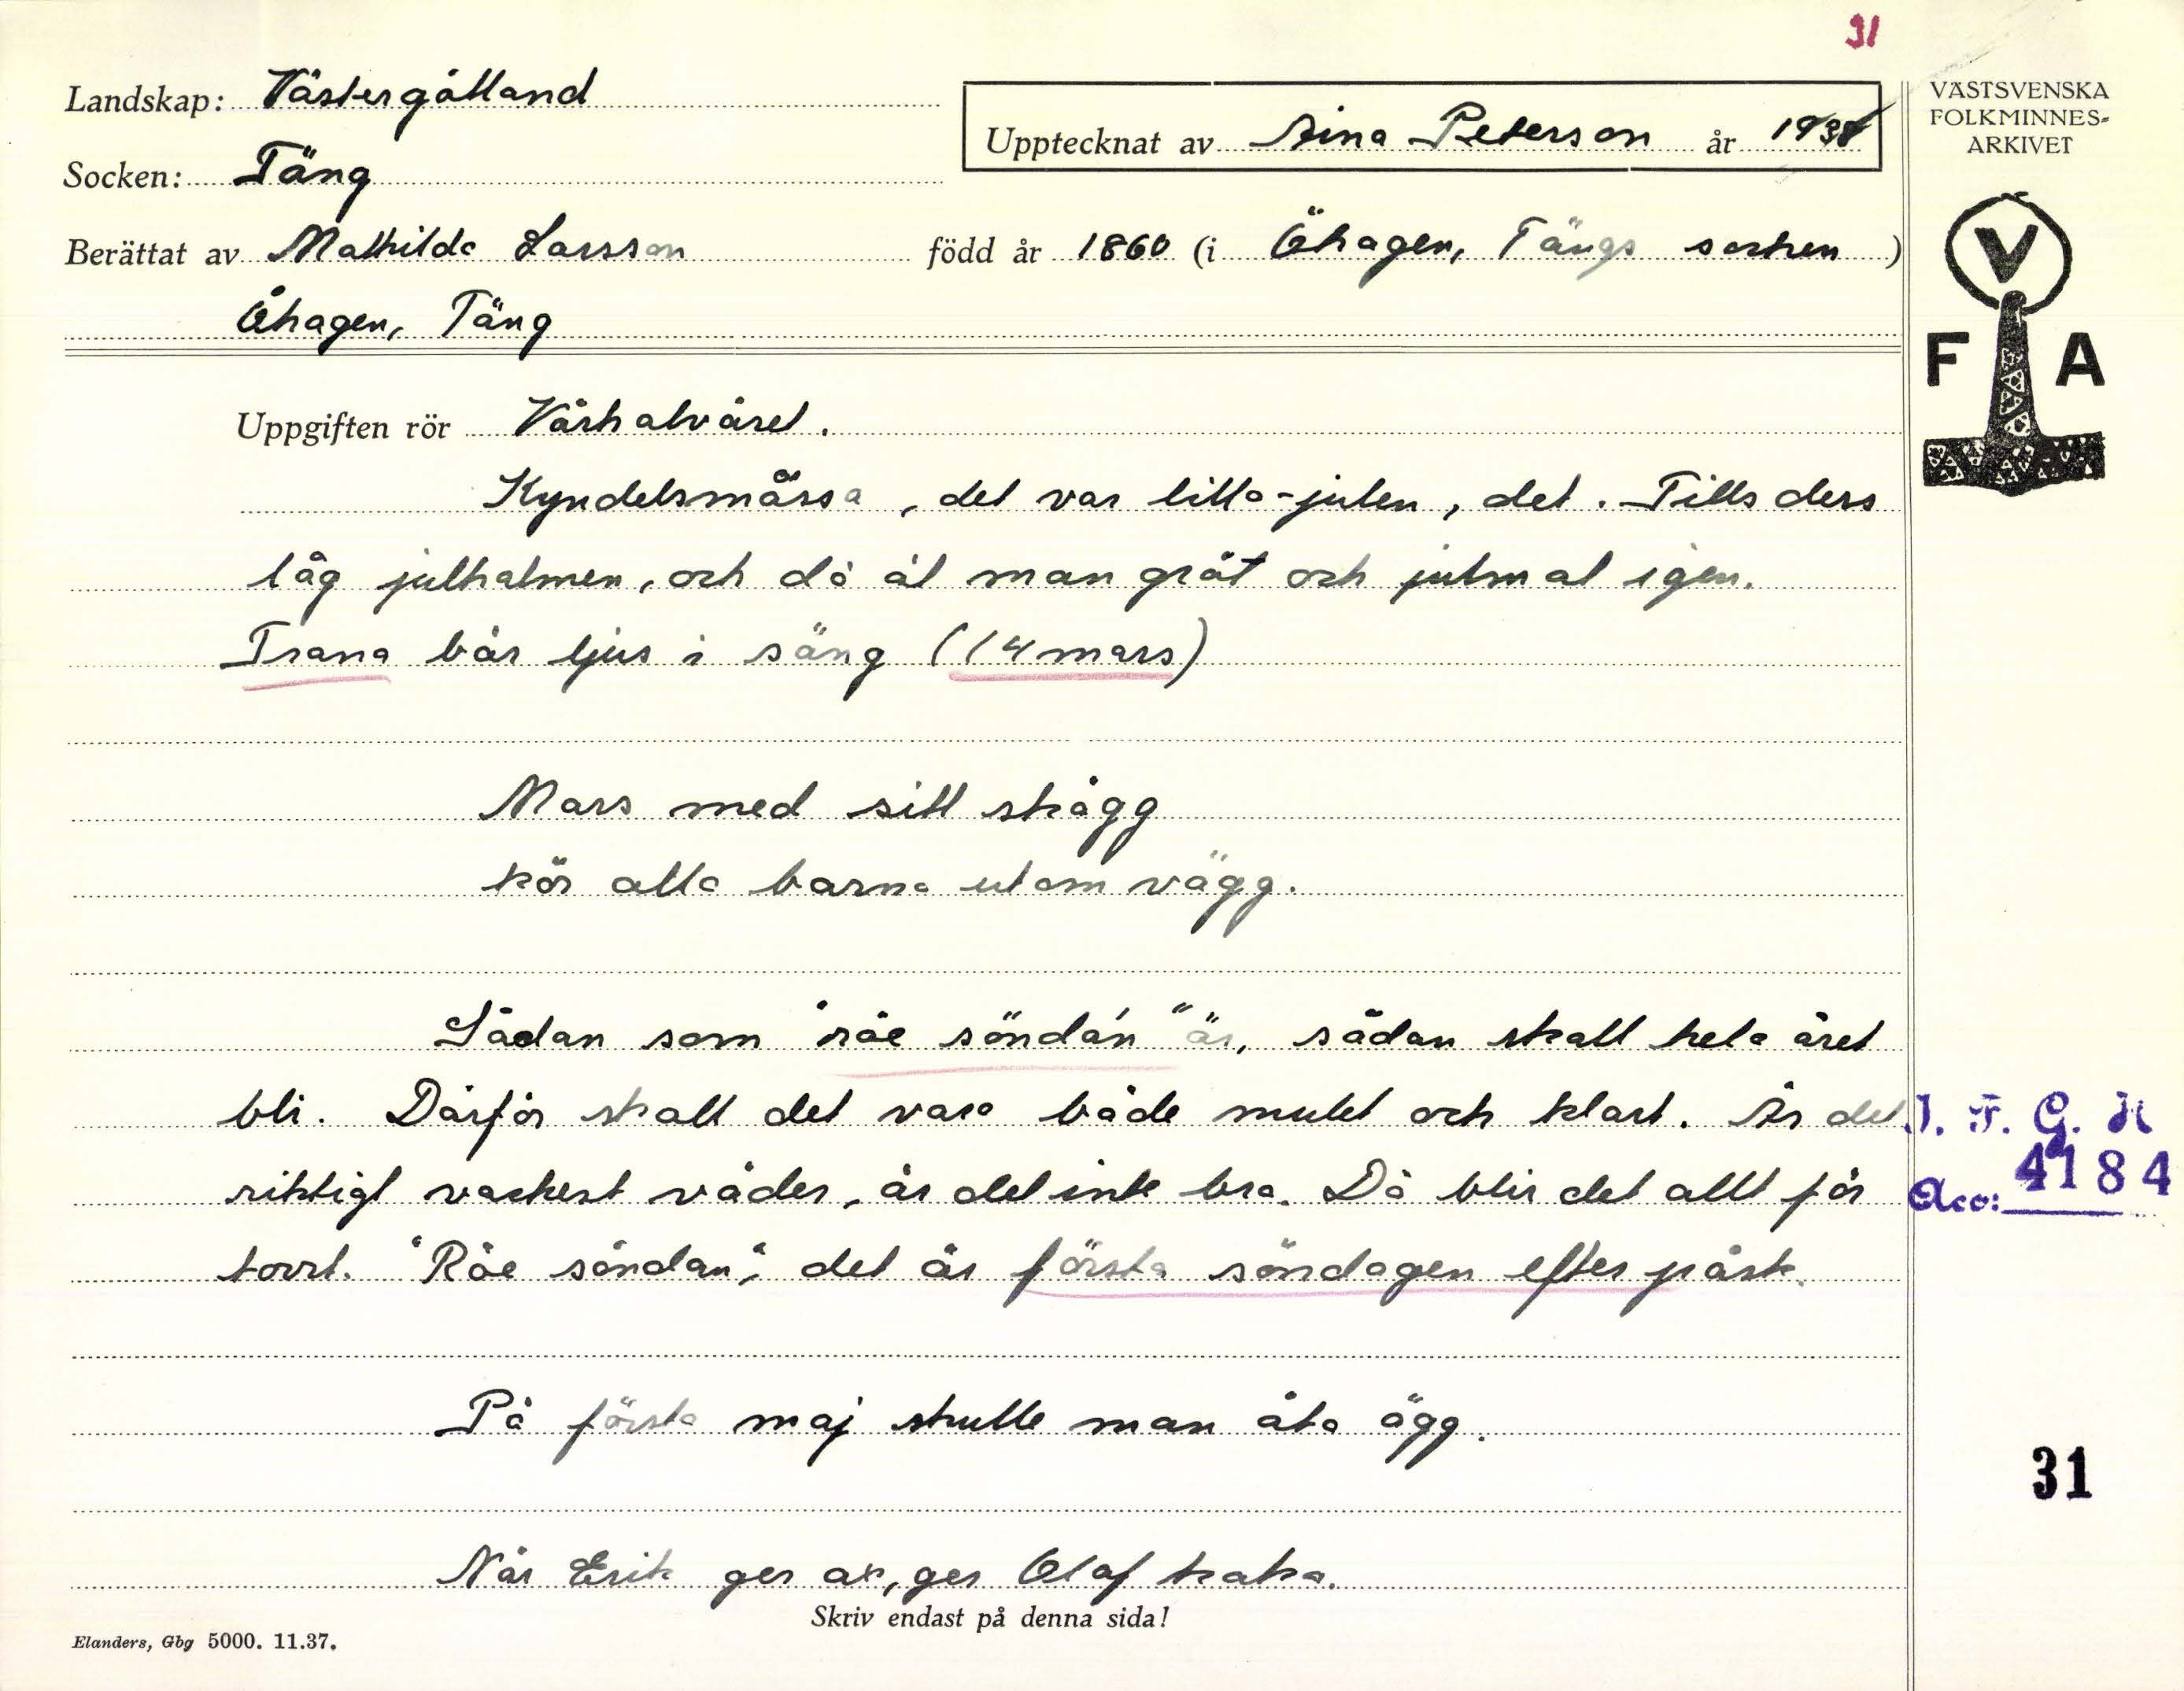 31
Landskap: Västergötland
Upptecknat av Aina Peterson år 1938
VÄSTSVENSKA
FOLKMINNES-
ARKIVET
Socken: Täng
Berättat av Mathilda Larsson född år 1860 (i Öhagen, Tängs socken)
Öhagen, Täng
V
F A
Uppgiften rör Vårhalvåret.
Kyndelsmässa, det var lilla-julen, det. Tills dess
låg julhalmen, och då åt man gröt och julmat igen.
Trana bär ljus i säng (14 mars)
Mars med sitt skägg
kör alla barna utom vägg.
Sådan som "röe söndan" är, sådan skall hela året
bli. Därför skall det vara både mulet och klart. Är det
riktigt vackert väder, är det inte bra. Då blir det allt för
torrt. "Röe söndan", det är första söndagen efter påsk.
På första maj skulle man äta ägg.
När Erik ger ax, ger Olaf kaka.
Skriv endast på denna sida!
Elanders, Gbg 5000. 11.37.
I. F. G. H
Acc: 4184
31